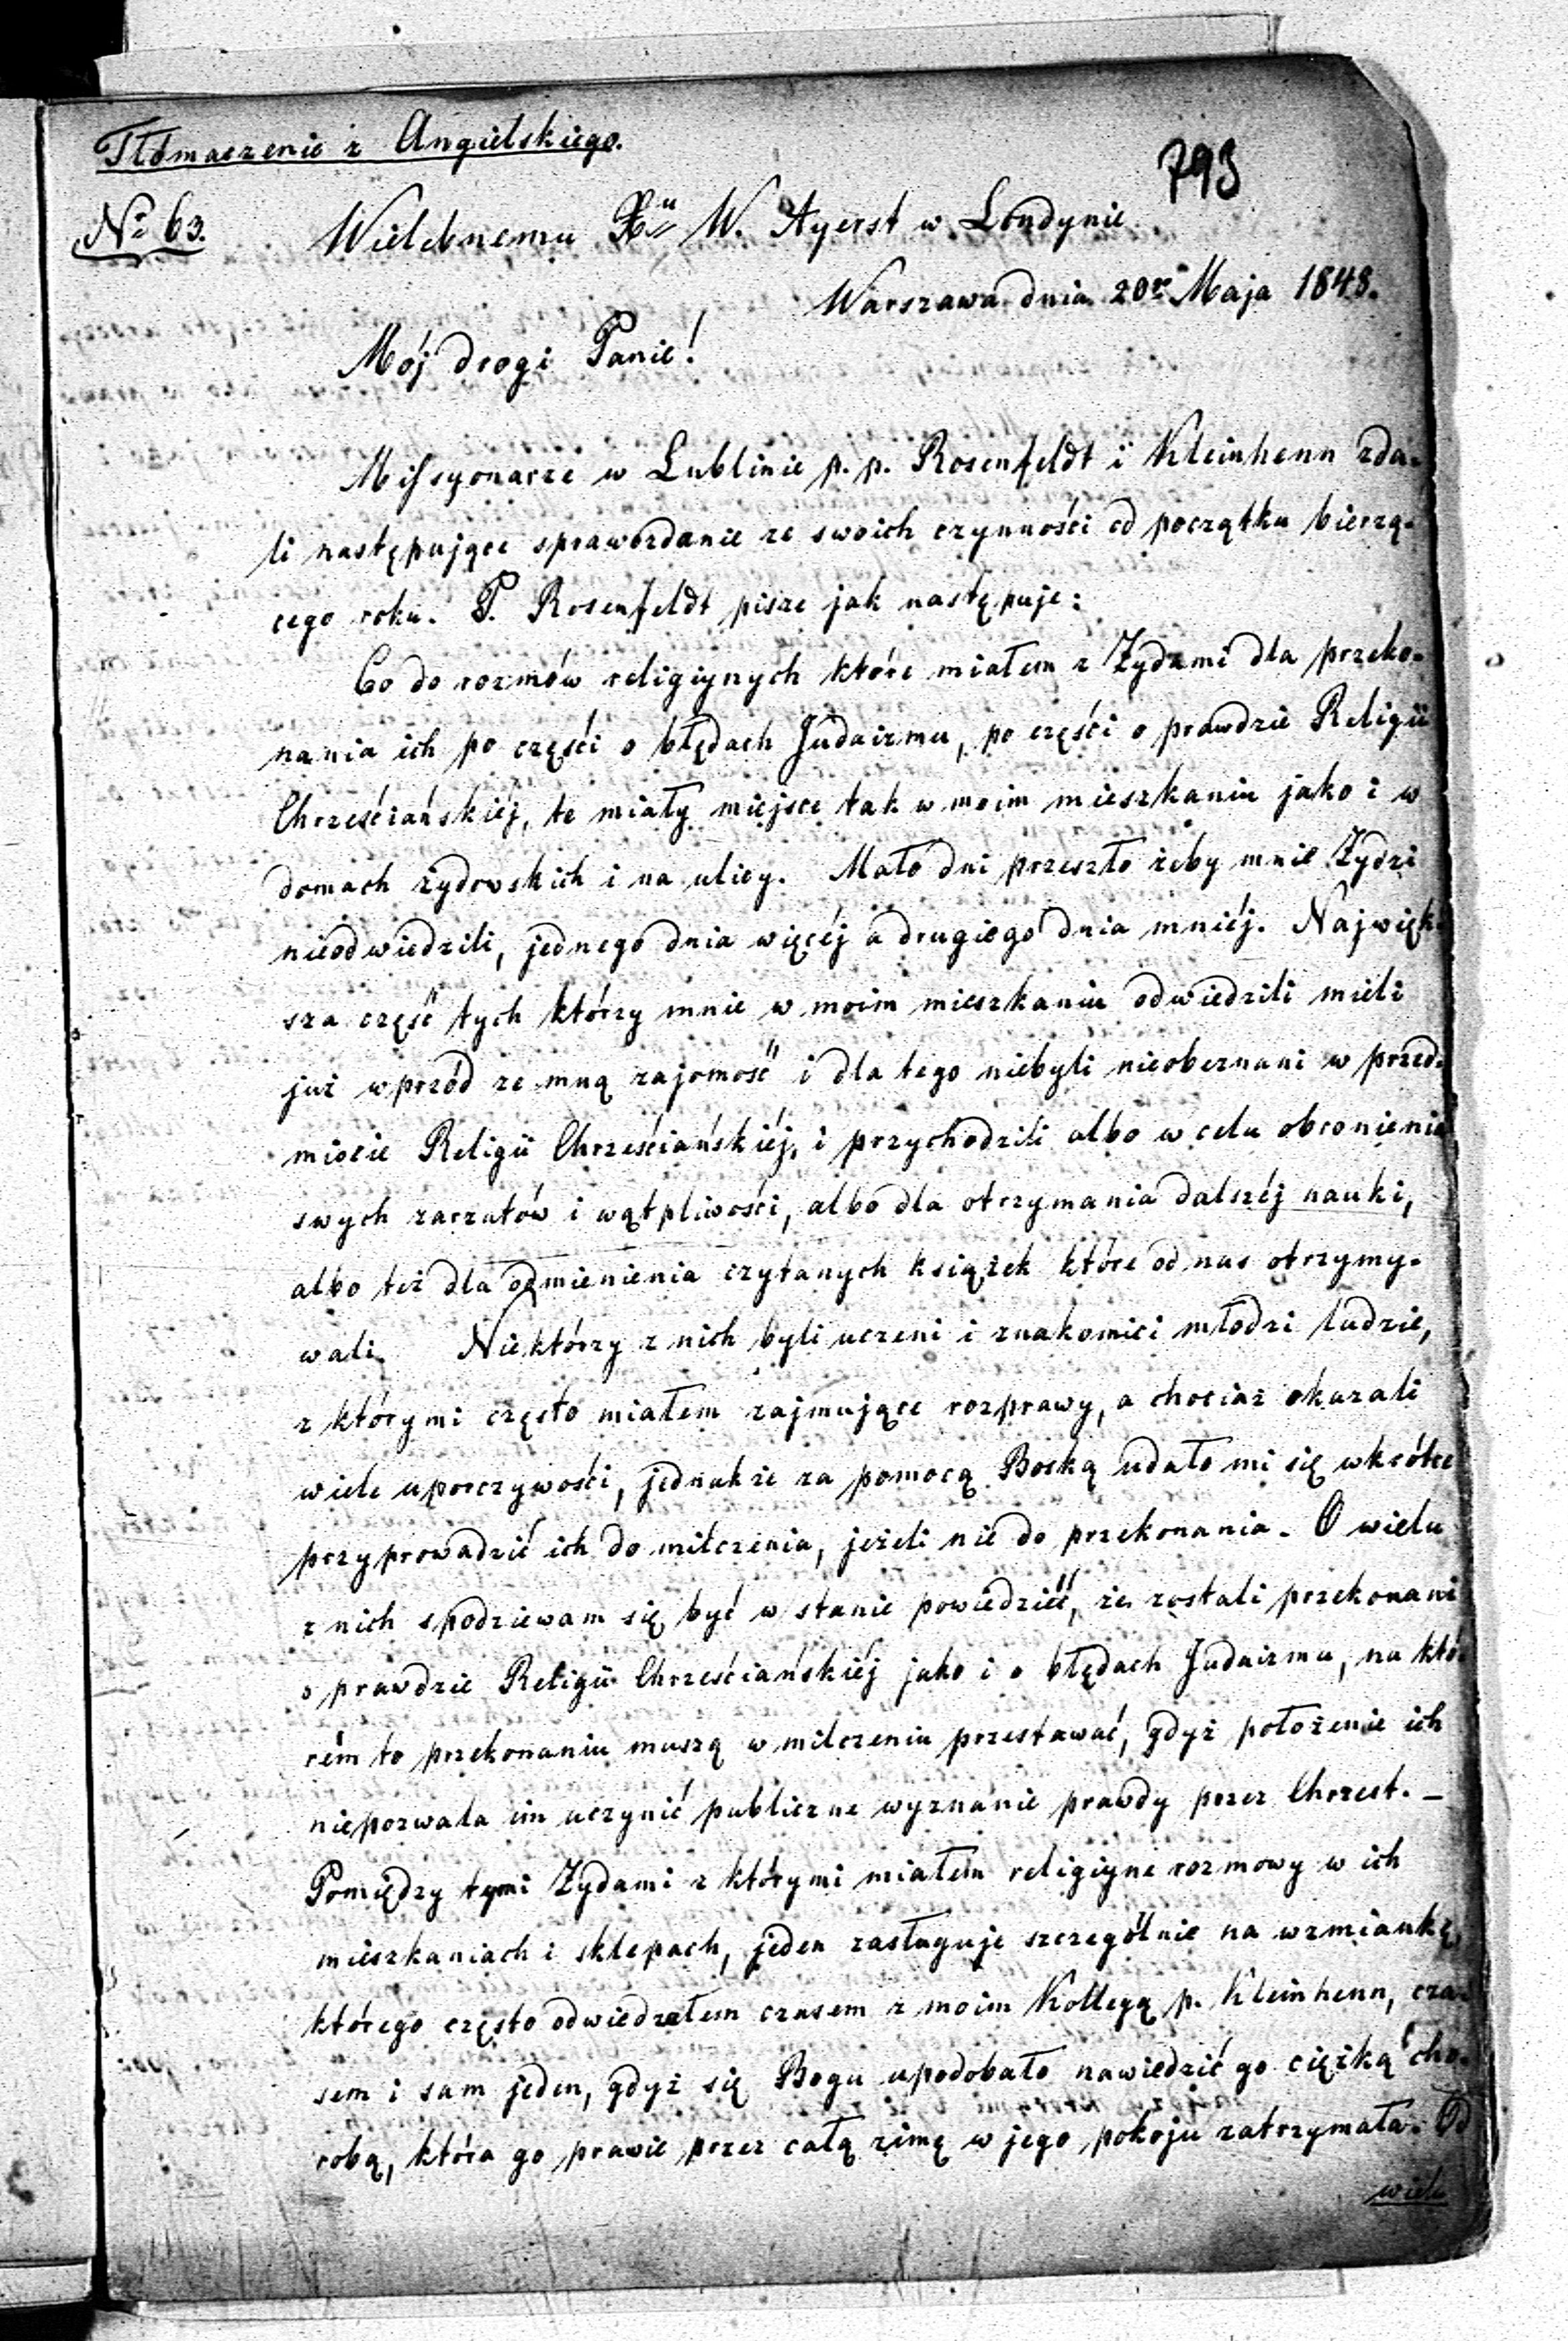 Tłómaczenie z Angielskiego.
793
No 63.
Wielebnemu Xu W. Ayerst w Londynie
Warszawa dnia 20go Maja 1848.
Mój drogi Panie!
Missyonarze w Lublinie p. p. Rosenfeldt i Kleinhenn zda-
li następujące sprawozdanie ze swoich czynności od początku bieżą-
cego roku. P. Rosenfeldt pisze jak następuje:
Co do rozmów religijnych które miałem z Żydami dla przeko-
nania ich po części o błędach Judaizmu, po części o prawdzie Religii
Chrześciańskiéj, te miały miejsce tak w moim mieszkaniu jako i w
domach żydowskich i na ulicy. Mało dni przeszło żeby mnie Żydzi
nieodwiedzili, jednego dnia więcéj a drugiego dnia mniéj. Najwięk-
sza część tych którzy mnie w moim mieszkaniu odwiedzili mieli
już wprzód ze mną zajomość i dla tego niebyli nieobeznani w przed-
miocie Religii Chrześciańskiéj, i przychodzili albo w celu obronienia
swych zarzutów i wątpliwości, albo dla otrzymania dalszéj nauki,
albo też dla odmienienia czytanych książek które od nas otrzymy-
wali. Niektórzy z nich byli uczeni i znakomici młodzi ludzie,
z którymi często miałem zajmujące rozprawy, a chociaż okazali
wiele uporczywości, jednakże za pomocą Boską udało mi się wkrótce
przyprowadzić ich do milczenia, jeżeli nie do przekonania. O wielu
z nich spodziewam się być w stanie powiedzieć, że zostali przekonani
o prawdzie Religii Chrześciańskiéj jako i o błędach Judaizmu, na któ-
rém to przekonaniu muszą w milczeniu przestawać, gdyż położenie ich
niepozwala im uczynić publiczne wyznanie prawdy przez Chrzest. —
Pomiędzy tymi Żydami z którymi miałem religijne rozmowy w ich
mieszkaniach i sklepach, jeden zasługuje szczególnie na wzmiankę,
którego często odwiedzałem czasem z moim Kollegą p. Kleinhenn, cza-
sem i sam jeden, gdyż się Bogu upodobało nawiedzić go ciężką cho-
robą, która go prawie przez całą zimę w jego pokoju zatrzymała. Od
wielu